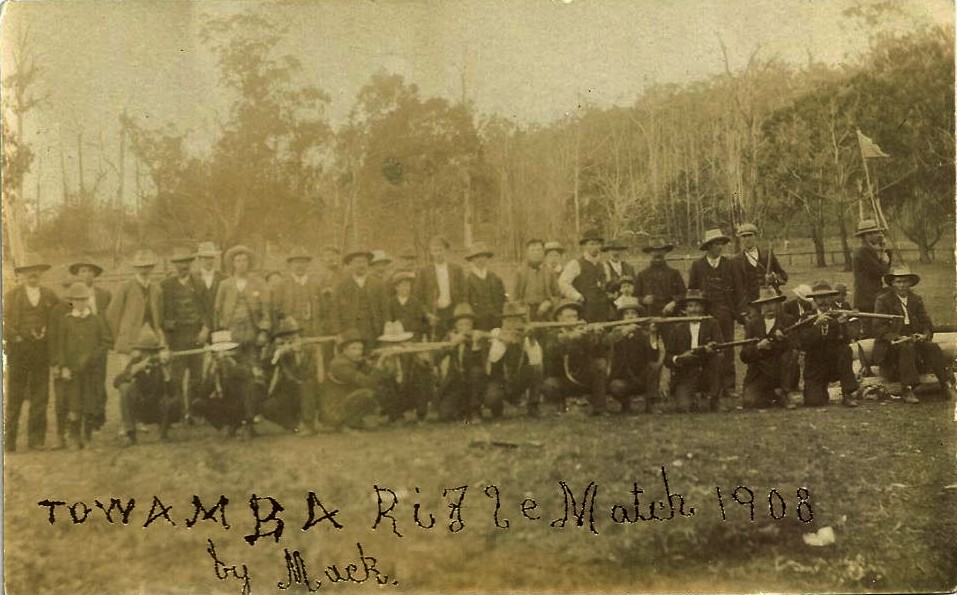 TOWAMBA Rifle Match 1908
by Mack.